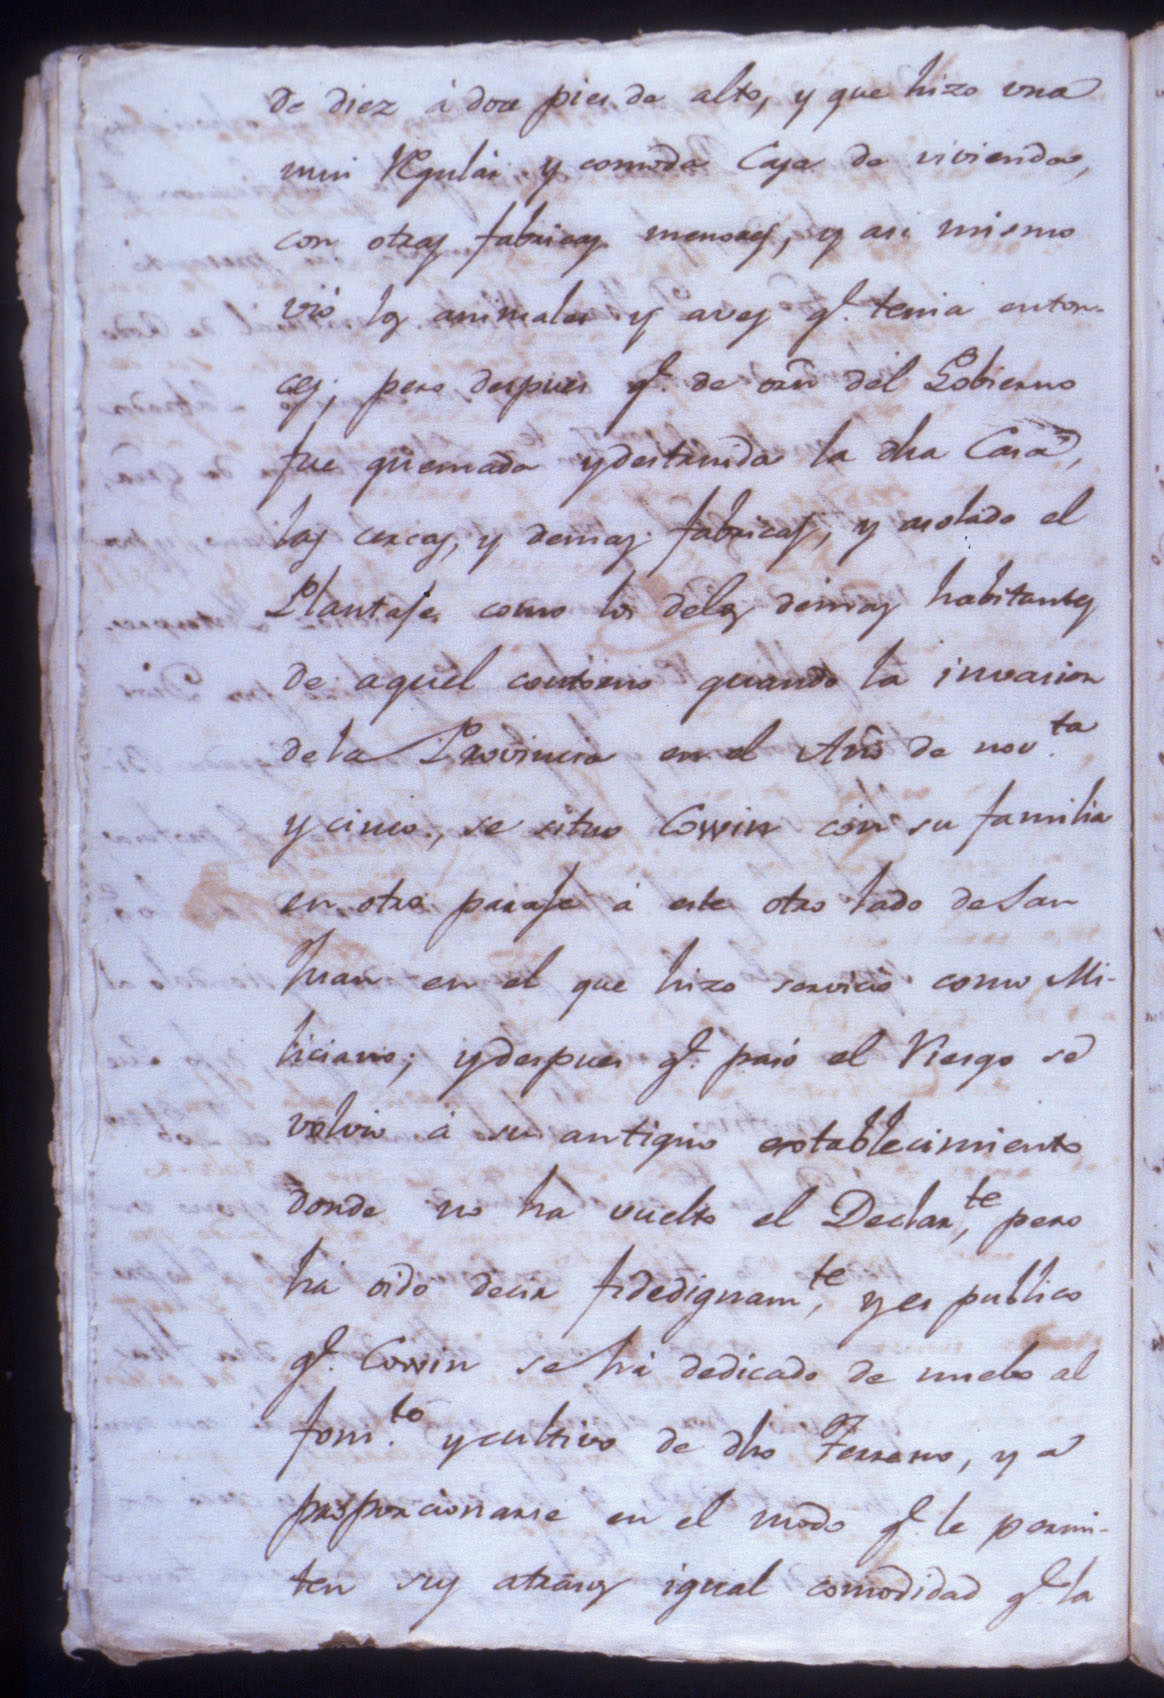 de diez á doce pies de alto, y que hizo una
mui Regular y comoda Casa de vivienda,
con otras fabricas menores, y asi mismo
vió los animales y aves q.e tenia enton-
ces; pero despues q.e de orñ del Gobierno
fue quemada y destruida la dha Casa,
las cercas, y demas fabricas, y asolado el
Plantaje, como los delos demas habitantes
de aquel contorno quando la invasion
de la Provincia en el Año de nov.ta
y cinco, se situo Cowin con su familia
en otro paraje á este otro lado de San
Juan en el que hizo servicio como Mi-
liciano; y despues q.e pasó el Riesgo se
volvio á su antiguo establecimiento
donde no ha vuelto el Declar.te, pero
ha oido decir fidedignam.te, y es publico
q.e Cowin se ha dedicado de nuebo al
fom.to y cultivo de dho Terreno, y a
proporcionarse en el modo q.e le permi-
ten sus atrasos igual comodidad q.e la